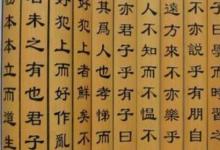 曰學而時習之
不亦說乎有朋自
遠方來不亦樂乎
人不知而不慍不
亦君子乎有子曰
其爲人也孝悌而
好犯上者鮮矣不
好犯上而好作亂
者未之有也君子
本本立而道生